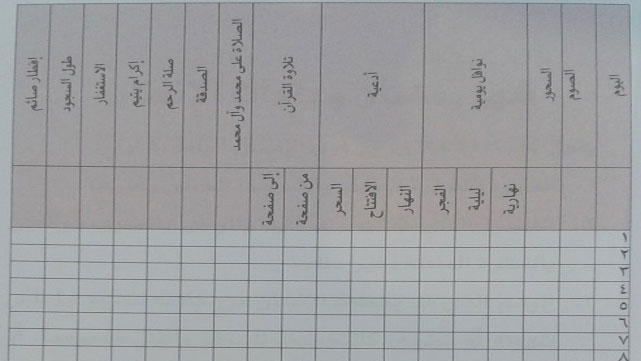 اليوم
الصوم
السحور
نوافل يومية
نهارية
ليلية
الفجر
ادعية
النهار
الافتتاح
السحر
تلاوة القرآن
من صفحة
إلى صفحة
الصلاة على محمد وآل محمد
الصدقة
صلة الرحم
إكرام يتيم
الاستغفار
طول السجود
إفطار صائم
١
٢
٣
٤
٥
٦
٧